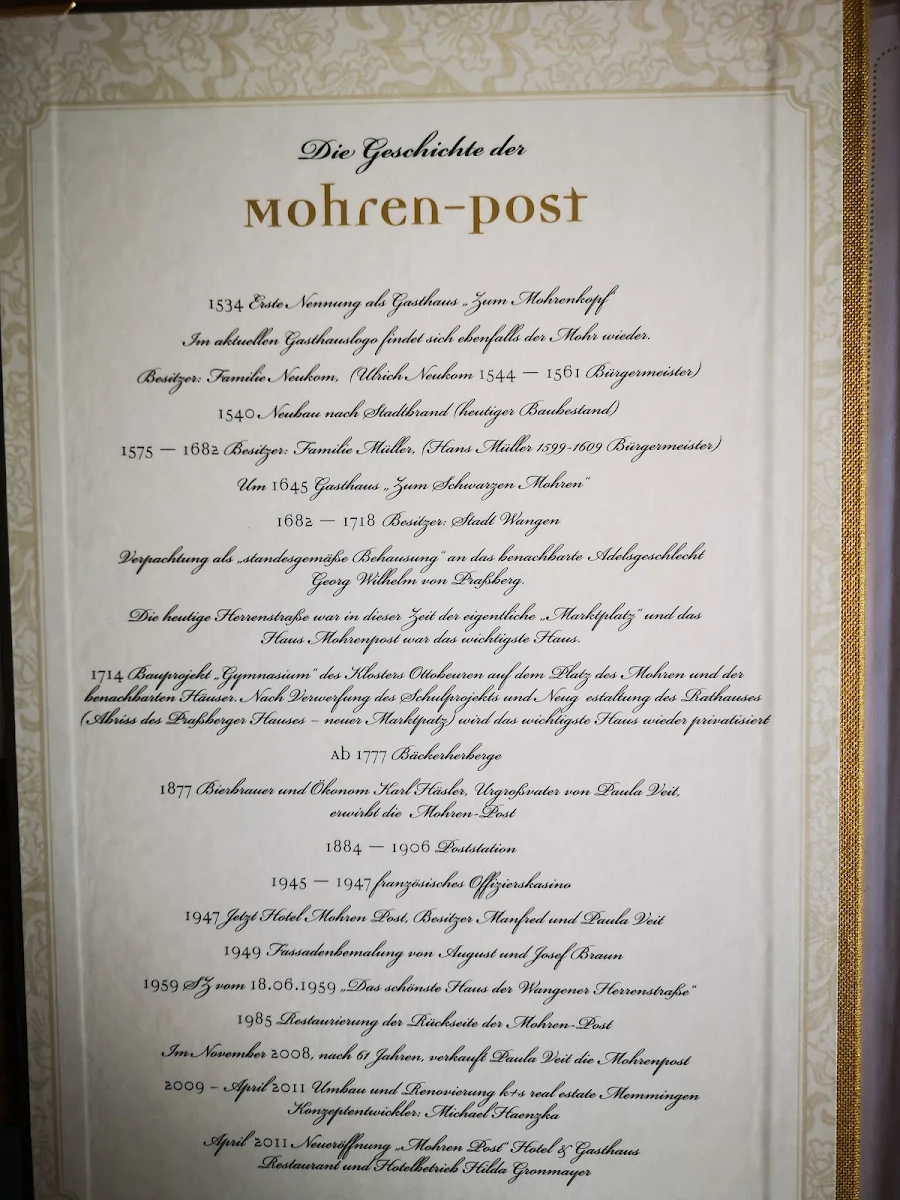 Die Geschichte der
Mohren-post
1534 Erste Nennung als Gasthaus „Zum Mohrenkopf“
Im aktuellen Gasthauslogo findet sich ebenfalls der Mohr wieder.
Besitzer: Familie Neukom, (Ulrich Neukom 1544 — 1561 Bürgermeister)
1540 Neubau nach Stadtbrand (heutiger Baubestand)
1575 — 1682 Besitzer: Familie Müller, (Hans Müller 1599-1609 Bürgermeister)
Um 1645 Gasthaus „Zum Schwarzen Mohren“
1682 — 1718 Besitzer: Stadt Wangen
Verpachtung als „standesgemäße Behausung“ an das benachbarte Adelsgeschlecht
Georg Wilhelm von Praßberg.
Die heutige Herrenstraße war in dieser Zeit der eigentliche „Marktplatz“ und das
Haus Mohrenpost war das wichtigste Haus.
1714 Bauprojekt „Gymnasium“ des Klosters Ottobeuren auf dem Platz des Mohren und der
benachbarten Häuser. Nach Verwerfung des Schulprojekts und Neug estaltung des Rathauses
(Abriss des Praßberger Hauses – neuer Marktpatz) wird das wichtigste Haus wieder privatisiert
Ab 1777 Bäckerherberge
1877 Bierbrauer und Ökonom Karl Häsler, Urgroßvater von Paula Veit,
erwirbt die Mohren-Post
1884 — 1906 Poststation
1945 — 1947 französisches Offizierskasino
1947 Jetzt Hotel Mohren Post, Besitzer Manfred und Paula Veit
1949 Fassadenbemalung von August und Josef Braun
1959 SZ vom 18.06.1959 „Das schönste Haus der Wangener Herrenstraße“
1985 Restaurierung der Rückseite der Mohren-Post
Im November 2008, nach 61 Jahren, verkauft Paula Veit die Mohrenpost
2009 – April 2011 Umbau und Renovierung k+s real estate Memmingen
Konzeptentwickler: Michael Haenzka
April 2011 Neueröffnung „Mohren Post“ Hotel & Gasthaus
Restaurant und Hotelbetrieb Hilda Gronmayer